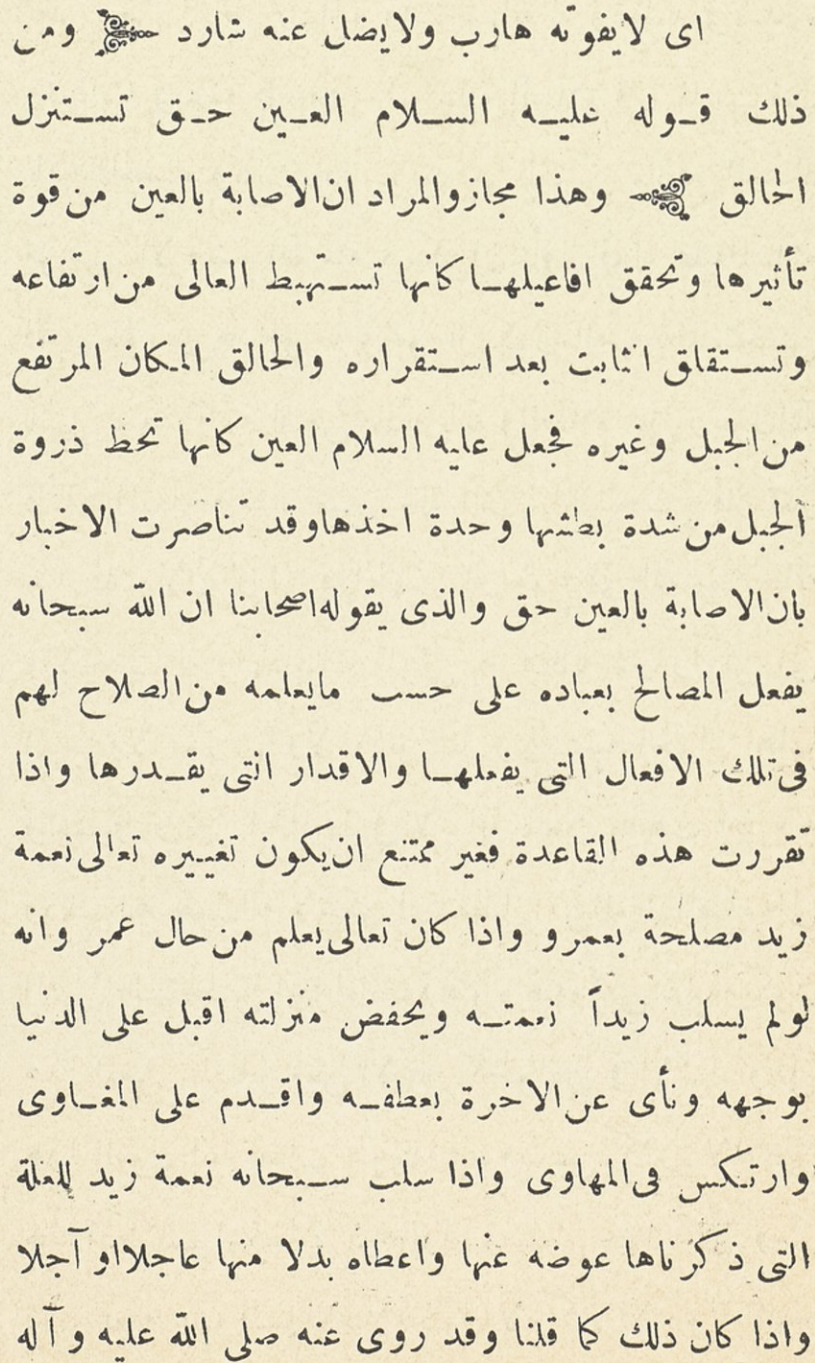 اى لايفوته هارب ولايضل عنه شارد ومن
ذلك قوله عليه السلام العين حق تستنزل
الحالق وهذا مجاز والمراد ان الاصابة بالعين من قوة
تأثيرها وتحقق افاعيلها كانها تستهبط العالى من ارتفاعه
وتستقلق الثابت بعد استقراره والحالق المكان المرتفع
من الجبل وغيره فجعل عليه السلام العين كانها تحط ذروة
الجبل من شدة بطشها وحدة اخذها وقد تناصرت الاخبار
بان الاصابة بالعين حق والذى يقوله اصحابنا ان الله سبحانه
يفعل المصالح بعباده على حسب مايعلمه من الصلاح لهم
فى تلك الافعال التى يفعلها والاقدار التى يقدرها واذا
تقررت هذه القاعدة فغير ممتنع ان يكون تغييره تعالى نعمة
زيد مصلحة بعمرو واذا كان تعالى يعلم من حال عمر وانه
لولم يسلب زيداً نعمته ويخفض منزلته اقبل على الدنيا
بوجهه ونأى عن الاخرة بعطفه واقدم على المغاوى
وارتكس فى المهاوى واذا سلب سبحانه نعمة زيد للعلة
التى ذكرناها عوضه عنها واعطاه بدلا منها عاجلا او آجلا
واذا كان ذلك كما قلنا وقد روى عنه صلى الله عليه وآله